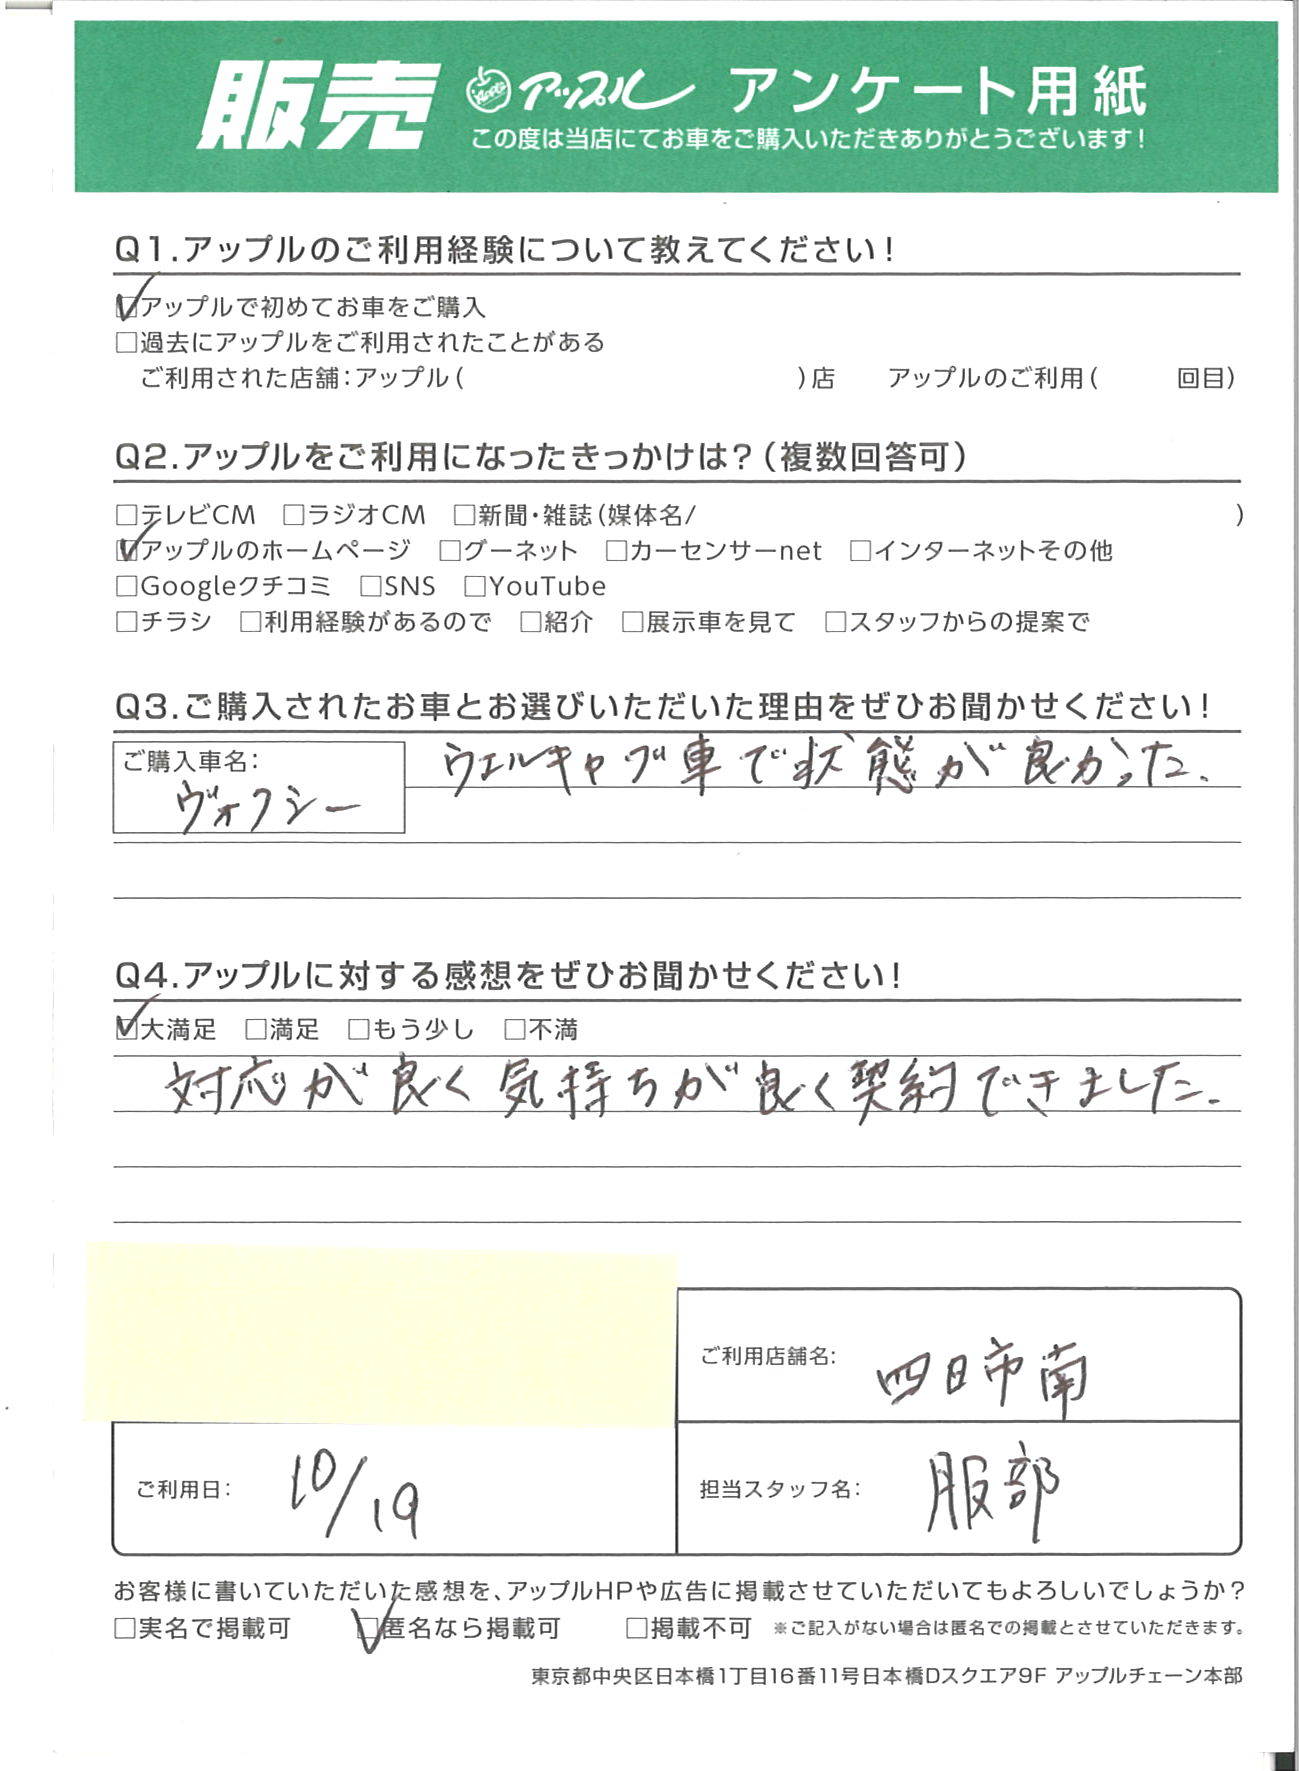 販売 アップル アンケート用紙
この度は当店にてお車をご購入いただきありがとうございます！
Q1.アップルのご利用経験について教えてください！
☑アップルで初めてお車をご購入
□過去にアップルをご利用されたことがある
ご利用された店舗：アップル（　　）店　アップルのご利用（　　回目）
Q2.アップルをご利用になったきっかけは？（複数回答可）
□テレビCM　□ラジオCM　□新聞・雑誌（媒体名/　　）
☑アップルのホームページ　□グーネット　□カーセンサーnet　□インターネットその他
□Googleクチコミ　□SNS　□YouTube
□チラシ　□利用経験があるので　□紹介　□展示車を見て　□スタッフからの提案で
Q3.ご購入されたお車とお選びいただいた理由をぜひお聞かせください！
ご購入車名：
ヴォクシー
ウェルキャブ車で状態が良かった.
Q4.アップルに対する感想をぜひお聞かせください！
☑大満足　□満足　□もう少し　□不満
対応が良く気持ちが良く契約できました.
ご利用店舗名：四日市南
ご利用日：10/19
担当スタッフ名：服部
お客様に書いていただいた感想を、アップルHPや広告に掲載させていただいてもよろしいでしょうか？
□実名で掲載可　☑匿名なら掲載可　□掲載不可　※ご記入がない場合は匿名での掲載とさせていただきます。
東京都中央区日本橋1丁目16番11号日本橋Dスクエア9F アップルチェーン本部